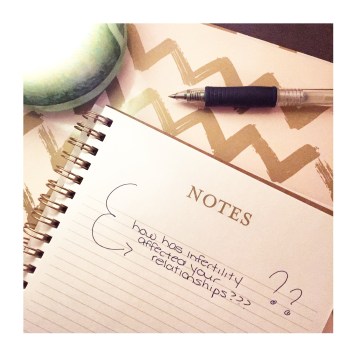 NOTES
how has infertility
affected your
relationships???
??